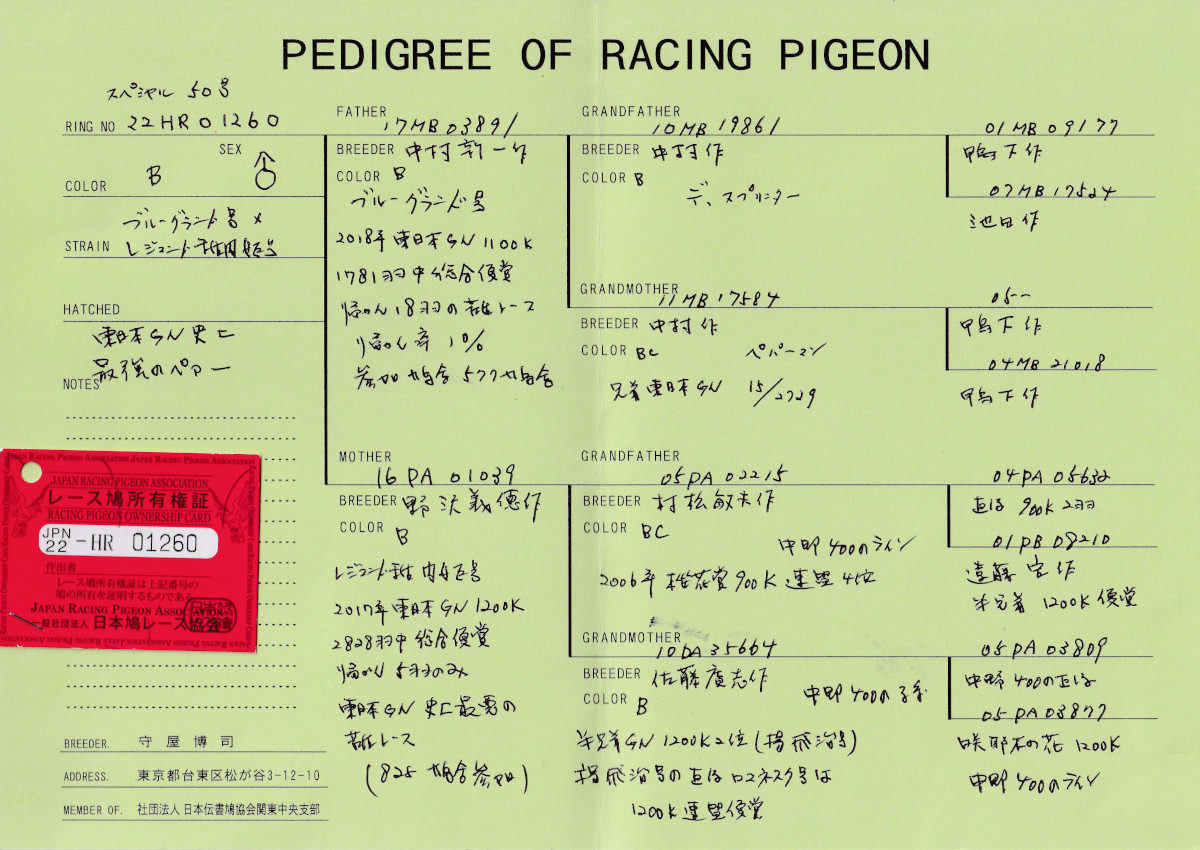 PEDIGREE OF RACING PIGEON
スペシャル 50号
RING NO 22HR01260
SEX ♂
COLOR B
ブルーグランド号 ×
STRAIN レジェンド 号
HATCHED
東日本GN史上
最強のペアー
NOTES
JAPAN RACING PIGEON ASSOCIATION
レース鳩所有権証
RACING PIGEON OWNERSHIP CARD
JPN 22 -HR 01260
作出者
レース鳩所有権証は上記番号の
鳩の所有を証明するものである。
JAPAN RACING PIGEON ASSOCIATION
一般社団法人 日本鳩レース協会
BREEDER. 守屋博司
ADDRESS. 東京都台東区松が谷3-12-10
MEMBER OF. 社団法人 日本伝書鳩協会関東中央支部
FATHER
17MB03891
BREEDER 中村 一作
COLOR B
ブルーグランド号
2018年東日本GN1100K
1781羽中総合優賞
帰かん18羽の苦難レース
帰かん率 1%
参加鳩舎577鳩舎
MOTHER
16DA 01039
BREEDER 野沢義徳作
COLOR B
レジェンド 号
2017年東日本GN1200K
2828羽中総合優賞
帰かん 5羽のみ
東日本GN史上最悪の
苦難レース
(825鳩舎参加)
GRANDFATHER
10MB19861
BREEDER 中村作
COLOR B
デ、スプリンター
GRANDMOTHER
11MB17584
BREEDER 中村作
COLOR BC ペパーマン
兄弟東日本GN 15/2729
GRANDFATHER
05DA02215
BREEDER 村松敏夫作
COLOR BC
中野400のライン
2006年桜花賞900K連盟4位
GRANDMOTHER
10DA35664
BREEDER 佐藤廣志作
COLOR B 中野400の系
半兄弟GN1200K2位( 号)
号の直仔ロマネスク号は
1200K連盟優賞
01MB09177
鴨下作
07MB17524
池田作
05--
鴨下作
04MB21018
鴨下作
04DA05632
直仔 900K2羽
01PB08210
遠藤 作
半兄弟 1200K優賞
05DA03809
中野400の直仔
05DA03877
咲耶木の花 1200K
中野400のライン